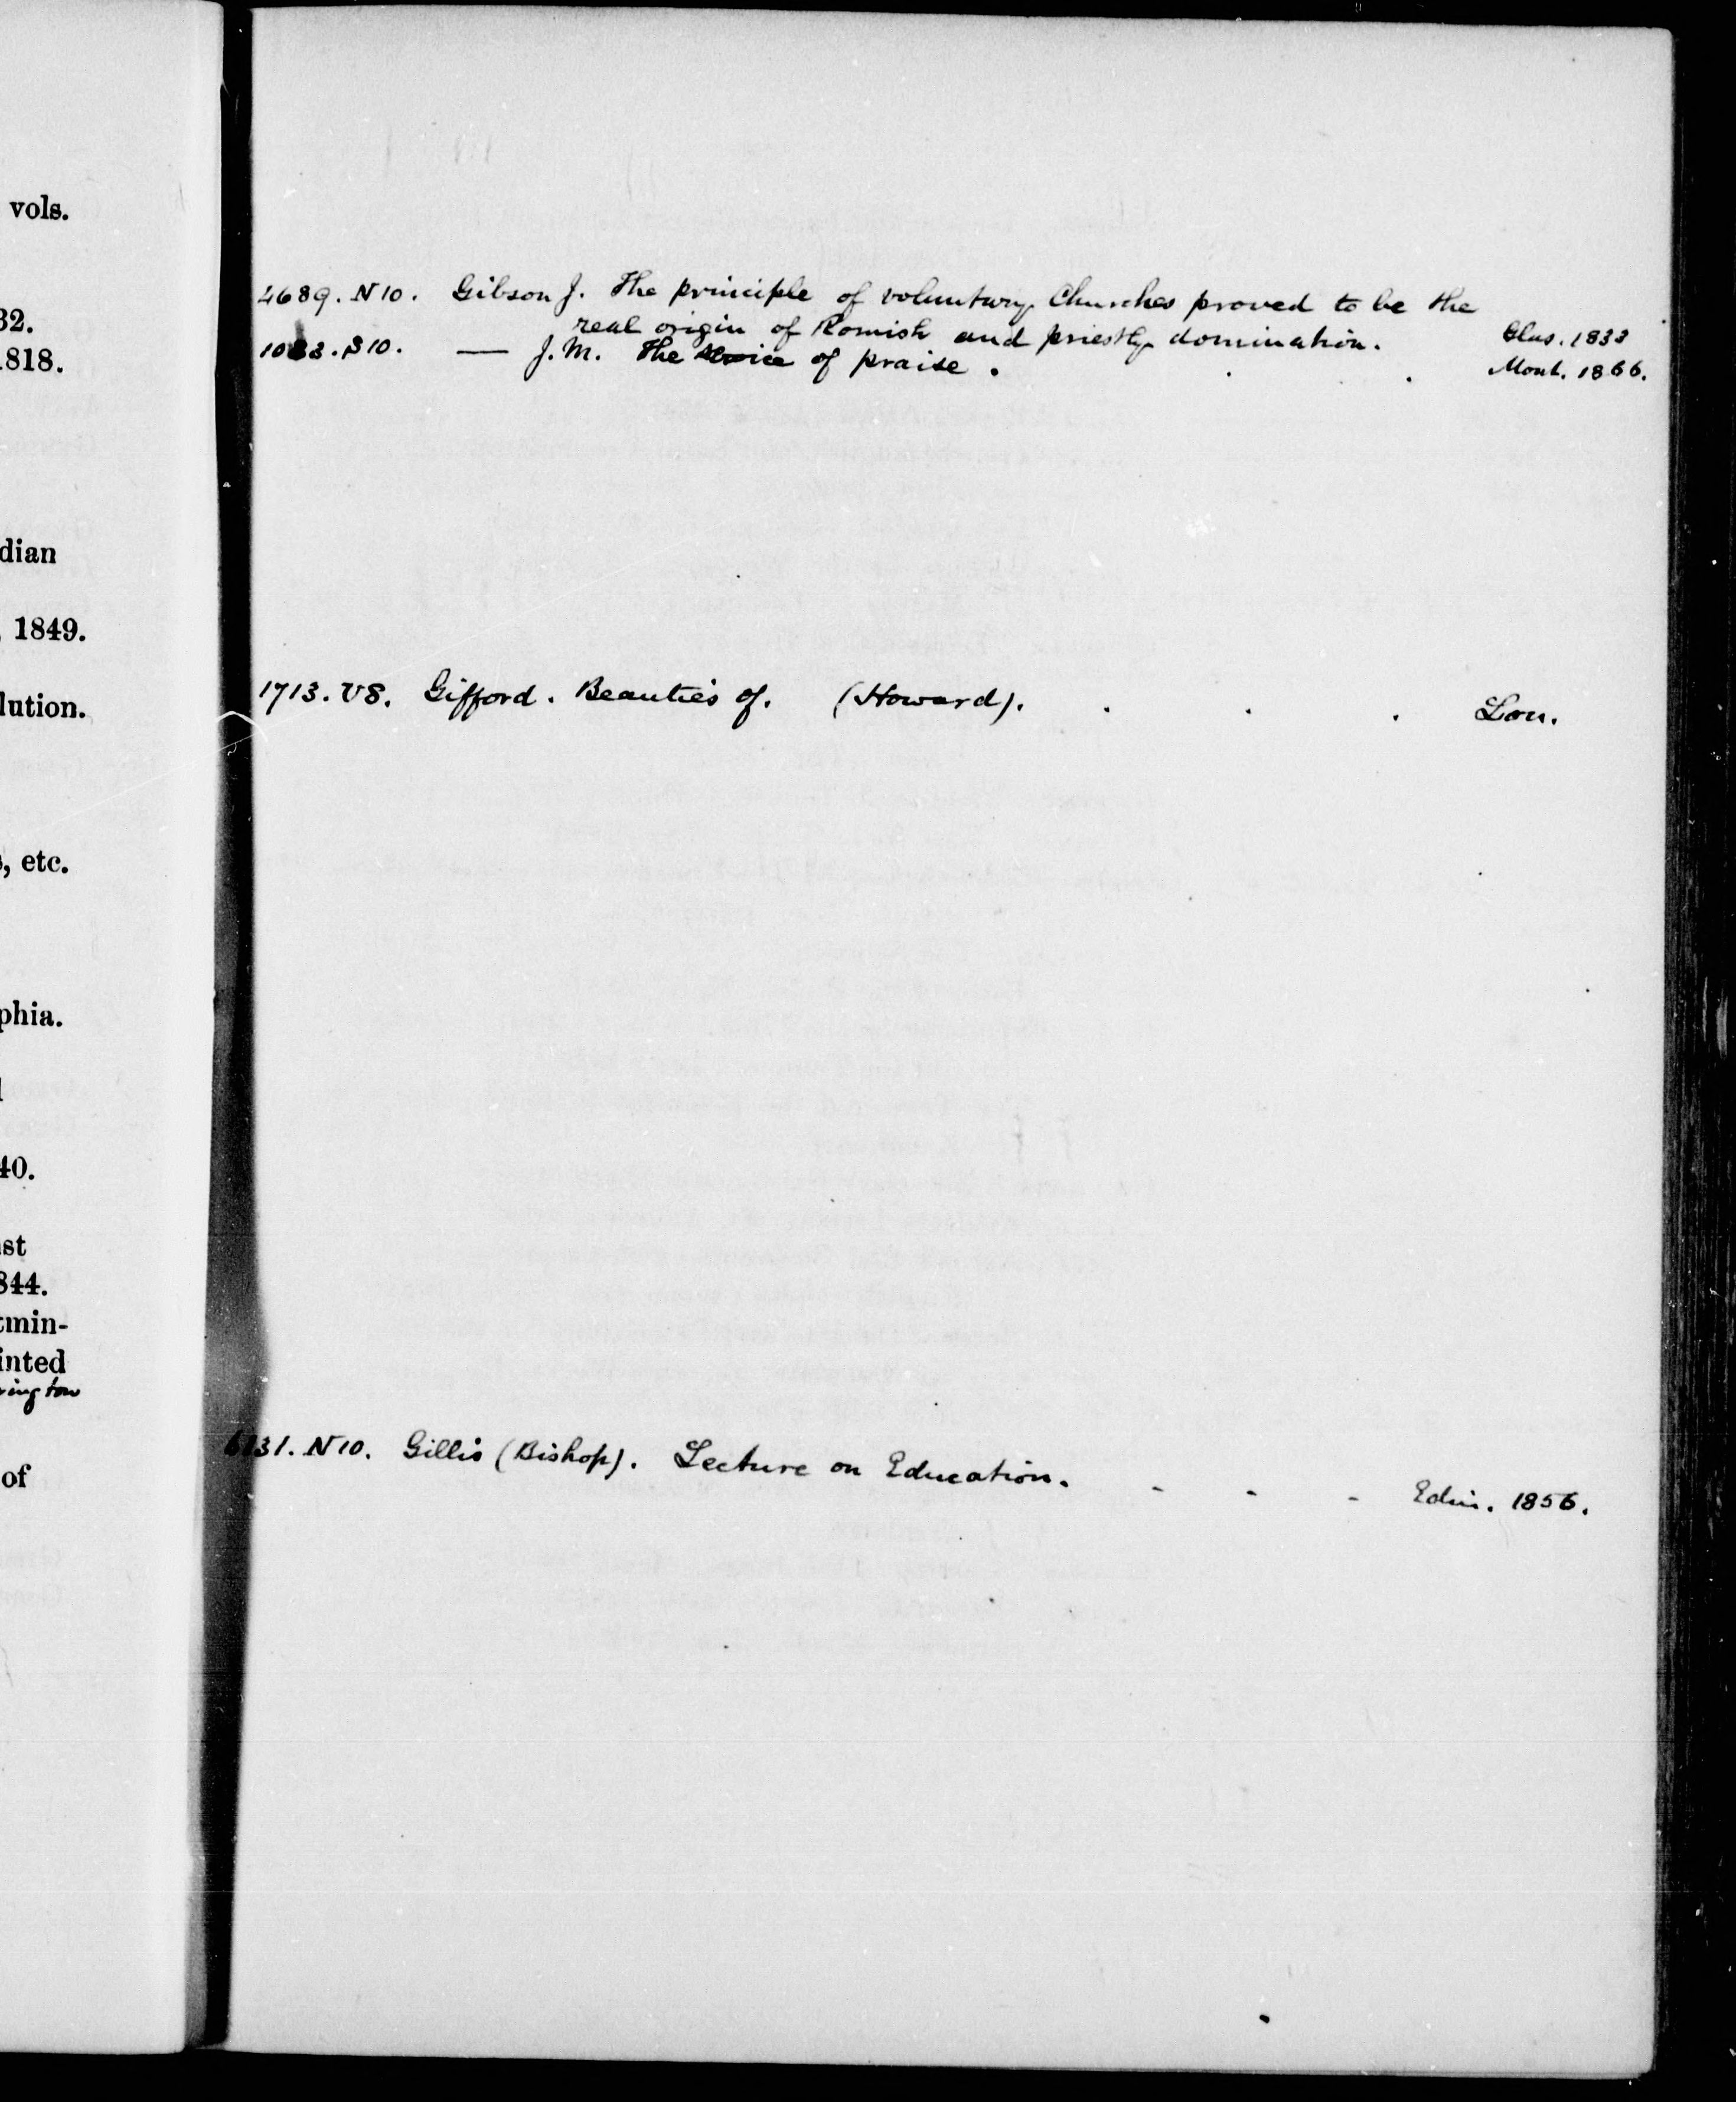 vols.
32.
1818.
dian
, 1849.
lution.
, etc.
phia.
40.
st
844.
tmin-
inted
rington
of
4689. N10. Gibson J. The principle of voluntary Churches proved to be the
real origin of Romish and priestly domination. Glas. 1833
S10. — J. M. The of praise . . . Mont. 1866.
1713. V8. Gifford. Beauties of. (Howard). . . . Lon.
6131. N10. Gillis (Bishop). Lecture on Education. - - - Edin. 1856.